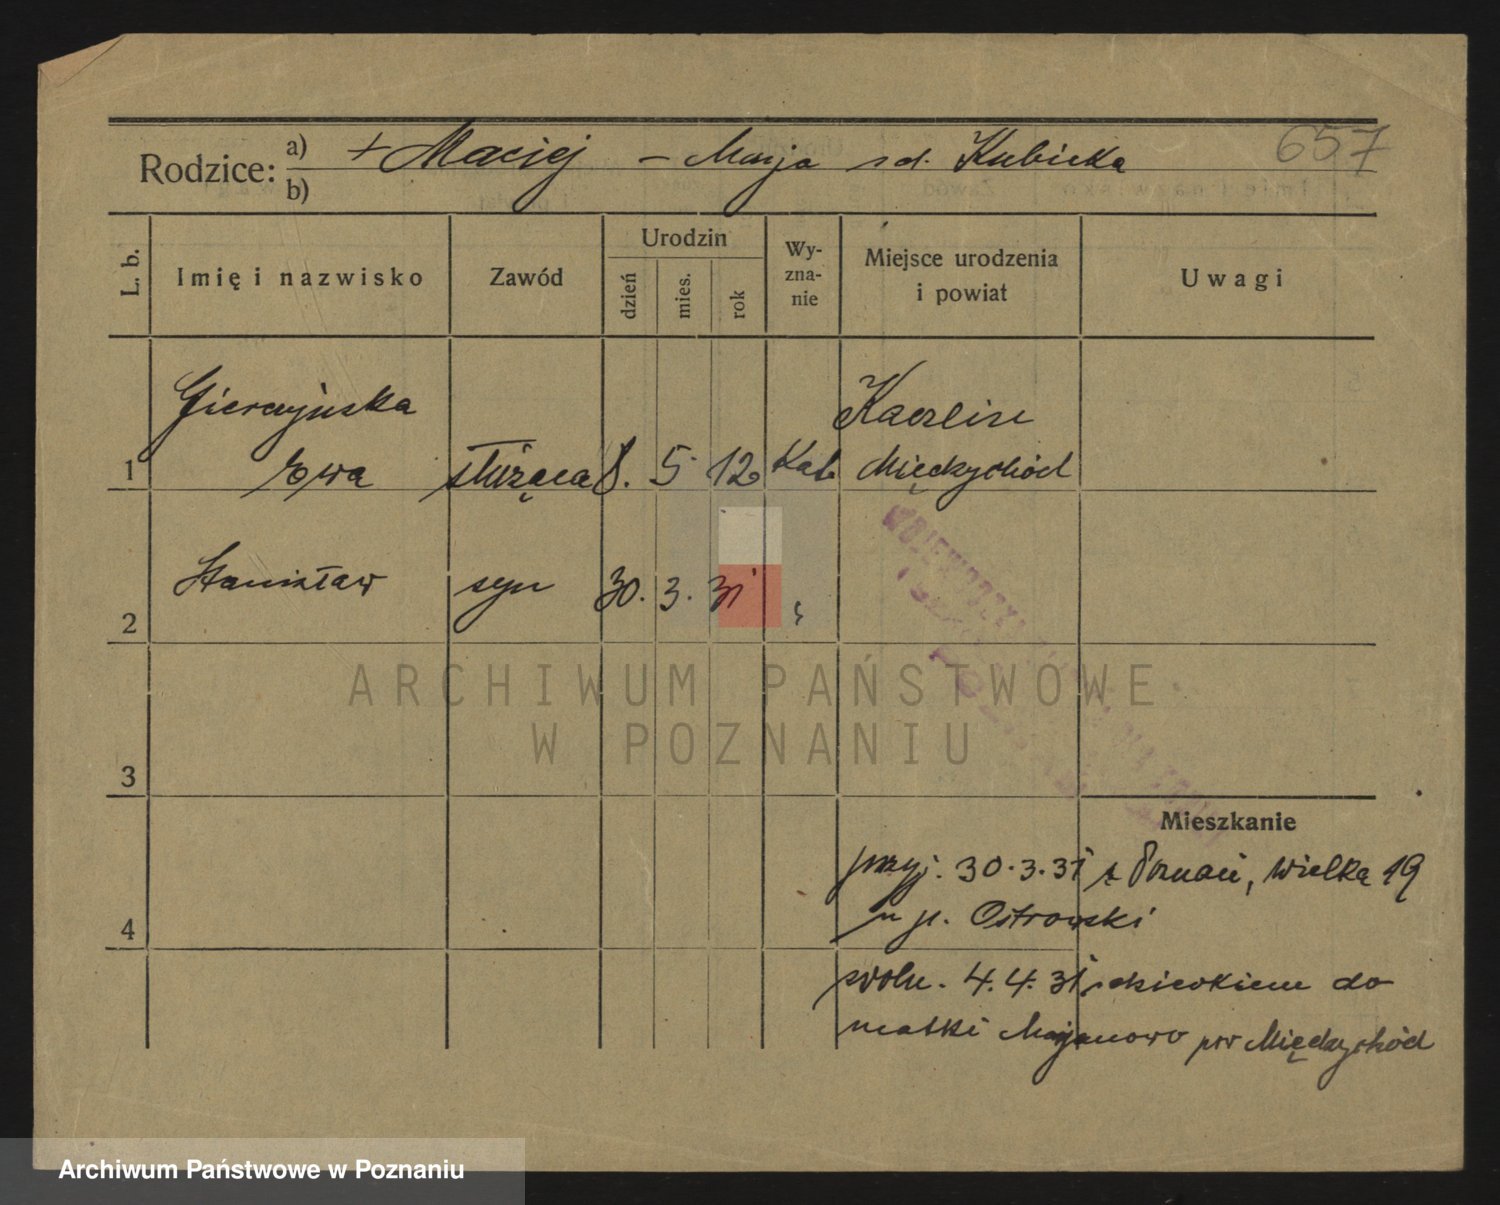 657
Rodzice: a) + Maciej – Marja z d. Kubicka
b)
L. b.
Imię i nazwisko
Zawód
Urodzin
dzień
mies.
rok
Wy-
zna-
nie
Miejsce urodzenia
i powiat
Uwagi
Gierczyńska
Kaczlin
1 Ewa służąca 8. 5 12 Kat. Międzychód
2 Stanisław syn 30. 3. 31 "
WOJEWÓDZKI
ARCHIWUM PAŃSTWOWE
W POZNANIU
3
Mieszkanie
przyj. 30.3.31 z Poznań, Wielka 19
4 u p. Ostrowski
zwoln. 4.4.31 z dzieckiem do
matki Marjanowo pow Międzychód
Archiwum Państwowe w Poznaniu